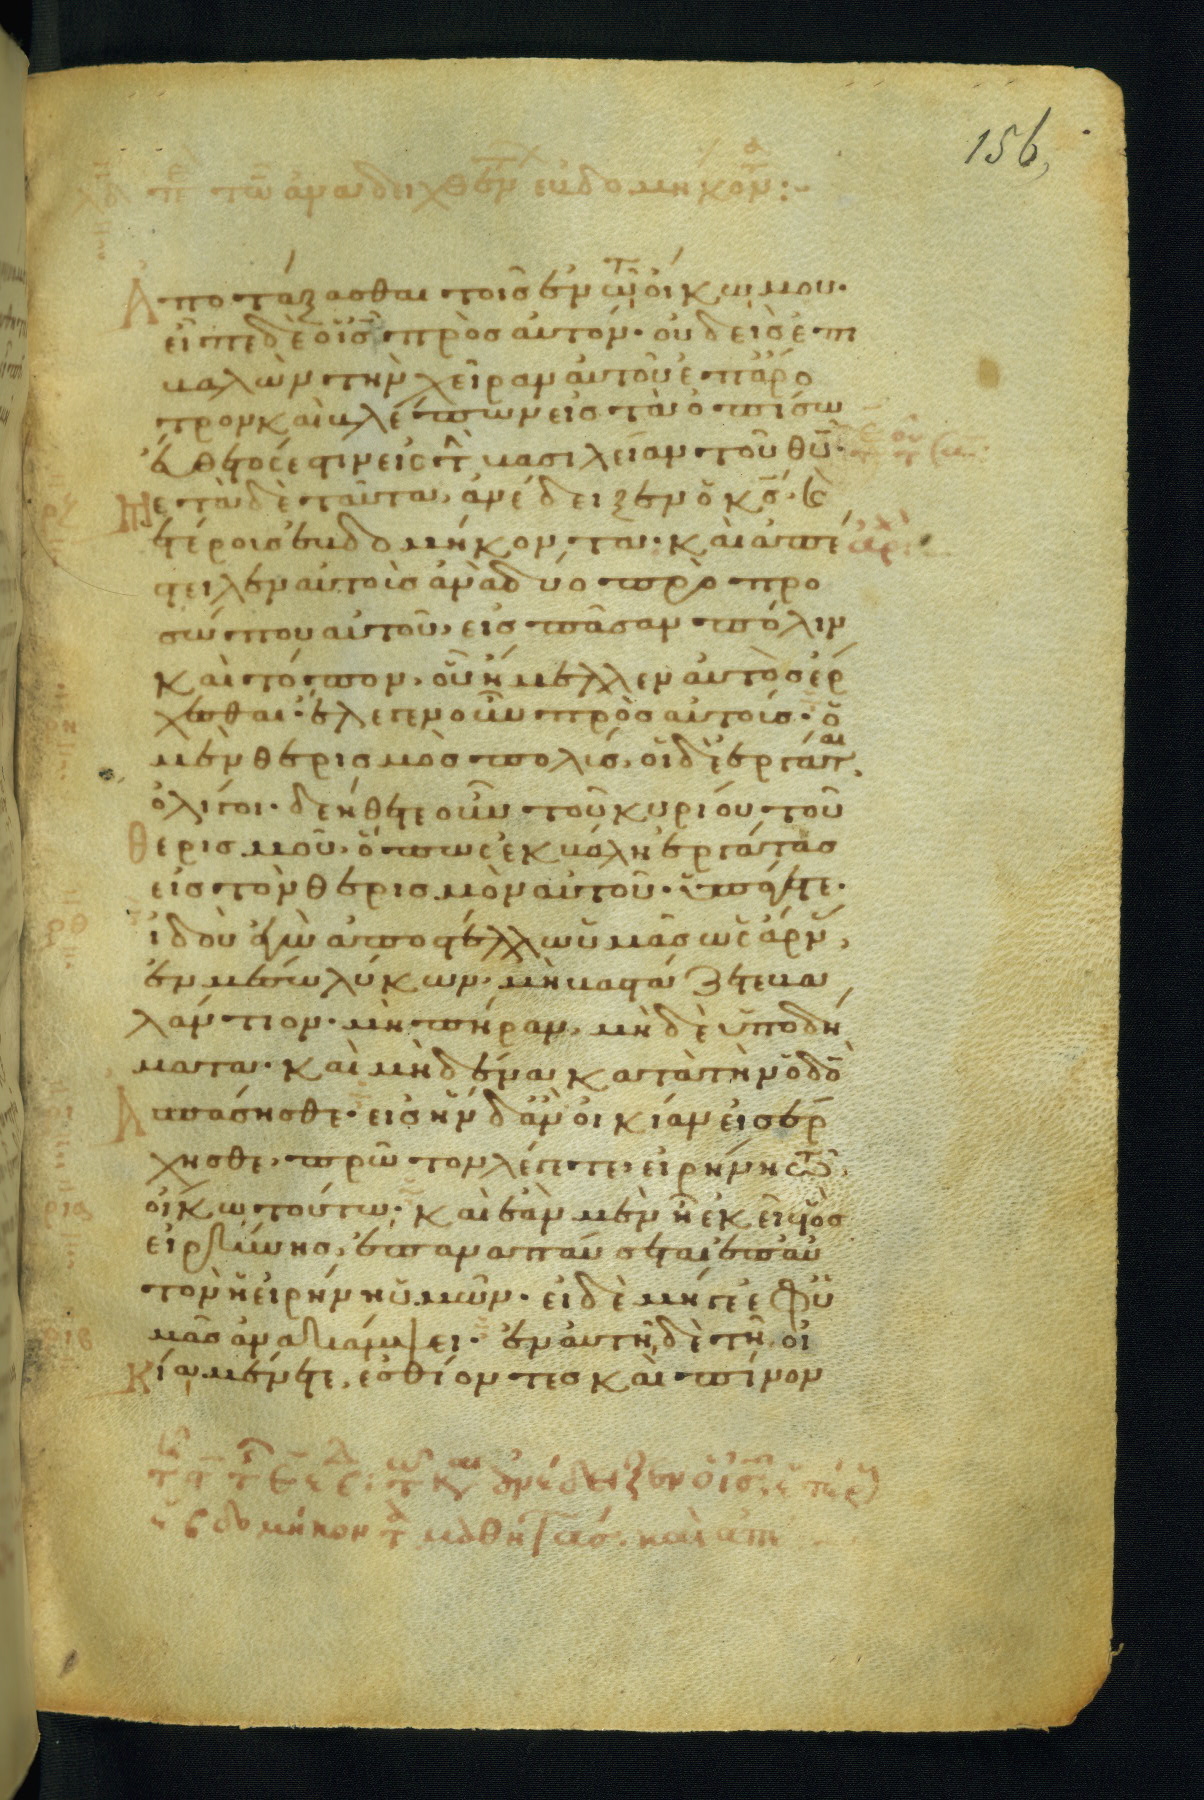 156
λδ πε τῶν ἀναδειχθέντ ἑβδομήκοντα:
Ἀποτάξασθαι τοῖς ἐν τῶ οἴκω μου·
εἶπε δὲ ὁ ις πρὸς αὐτόν· οὐδεὶς ἐπι
βαλὼν τὴν χεῖραν αὐτοῦ ἐπ᾽ ἄρο
τρον καὶ βλέπων εἰς τὰ ὀπίσω
εὔθετός ἐστιν εἰς τ βασιλείαν τοῦ θυ·
Μετὰ δὲ ταῦτα, ἀνέδειξεν ὁ κς· καὶ
ἑτέροις ἑβδομήκοντα· καὶ ἀπέ ἀρχ
στειλεν αὐτοὺς ἀνὰ δύο πρὸ προ
σώπου αὐτοῦ, εἰς πᾶσαν πόλιν
καὶ τόπον, οὗ ἤμελλεν αὐτὸς ἔρ
χεσθαι· ἔλεγεν οὖν πρὸς αὐτούς· ὁ
μὲν θερισμὸς πολύς, οἱ δὲ ἐργάται
ὀλίγοι· δεήθητε οὖν τοῦ κυρίου τοῦ
θερισμοῦ, ὅπως ἐκβάλη ἐργάτας
εἰς τὸν θερισμὸν αὐτοῦ· ὑπάγετε·
ἰδοὺ ἐγὼ ἀποστέλλω ὑμᾶς ὡς ἄρν,
ἐν μέσω λύκων· μὴ βαστάζετε βα
λάντιον· μὴ πήραν, μὴδὲ ὑποδή
ματα· καὶ μηδένα κατὰ τὴν ὁδὸ
Ἀσπάσησθε· εἰς ἣν δ᾽ ἂν οἰκίαν εἰσέρ
χησθε, πρῶτον λέγετε, εἰρήνη τῶ
οἴκω τούτω· καὶ ἐὰν μὲν ἦ ἐκεῖ υἱὸς
εἰρήνης, ἐπαναπαύσεται ἐπ᾽ αὐ
τὸν ἡ εἰρήνη ὑμῶν· εἰ δὲ μήγε ἐφ᾽ ὑ
μᾶς ἀνακάμψει· ἐν αὐτῆ δὲ τῆ οἰ
κία μένετε, ἐσθίοντες καὶ πίνον
ρη
ρθ
ρι
ρια
ριβ
τ κ ἀνέδειξεν ὁ ις ἑτέρ
ἑβδομήκοντ μαθητάς· καὶ ἀπ